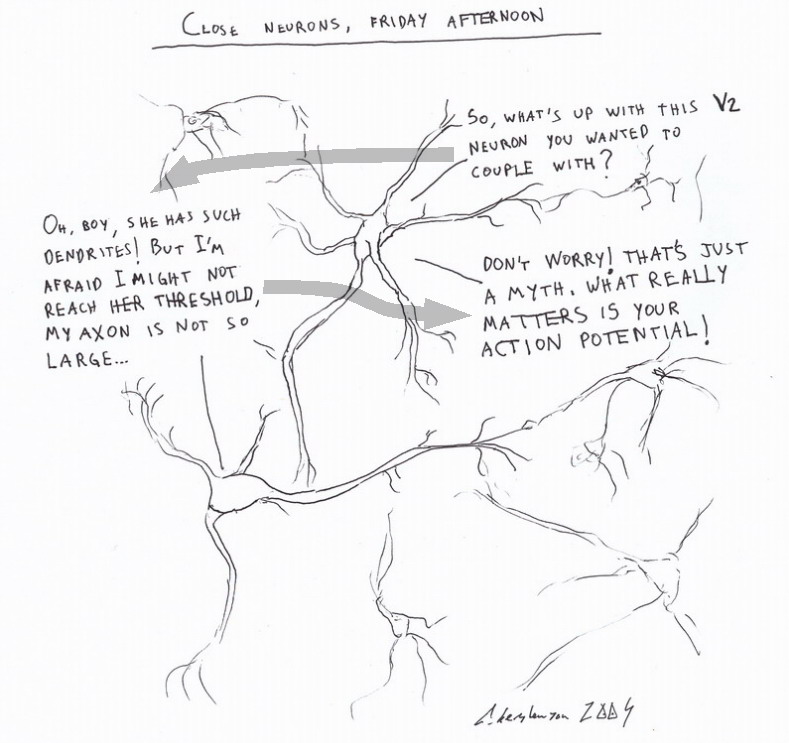 CLOSE NEURONS, FRIDAY AFTERNOON
SO, WHAT'S UP WITH THIS V2
NEURON YOU WANTED TO
COUPLE WITH?
OH, BOY, SHE HAS SUCH
DENDRITES! BUT I'M
AFRAID I MIGHT NOT
REACH HER THRESHOLD,
MY AXON IS NOT SO
LARGE...
DON'T WORRY! THAT'S JUST
A MYTH. WHAT REALLY
MATTERS IS YOUR
ACTION POTENTIAL!